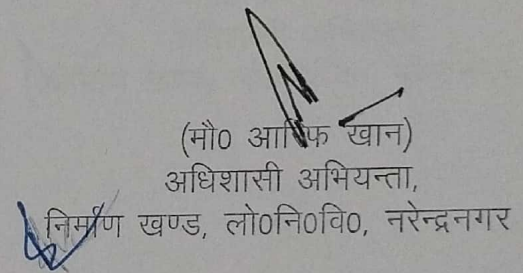 (मौ0 आरिफ खान)
अधिशासी अभियन्ता,
निर्माण खण्ड, लो0नि0वि0, नरेन्द्रनगर